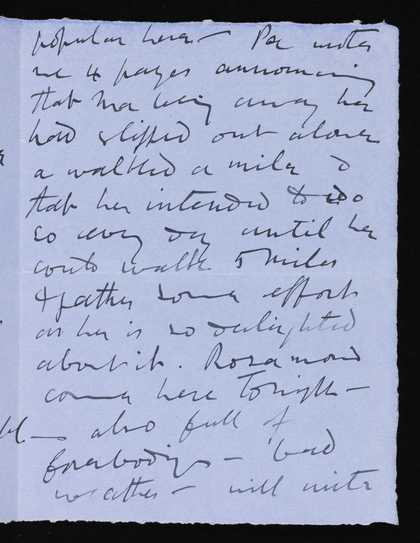 popular here — Pa writes
me 4 pages announcing
that Ma being away he
had slipped out alone
& walked a mile &
that he intended to do
so every day until he
could walk 5 miles
rather some effort
as he is so delighted
about it. Rosamond
comes here tonight —
also full of
forebodings — bad
weather — will write